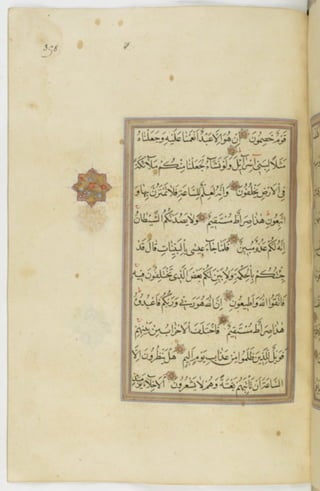 398
قَوْمٌ خَصِمُونَ اِنْ هُوَ اِلَّا عَبْدٌ اَنْعَمْنَا عَلَيْهِ وَجَعَلْنَاهُ
مَثَلًا لِبَنِي اِسْرَآئِيلَ وَلَوْ نَشَآءُ لَجَعَلْنَا مِنْكُمْ مَلَآئِكَةً
فِي الْاَرْضِ يَخْلُفُونَ وَاِنَّهُ لَعِلْمٌ لِلسَّاعَةِ فَلَا تَمْتَرُنَّ بِهَا وَ
اتَّبِعُونِ هٰذَا صِرَاطٌ مُسْتَقِيمٌ وَلَا يَصُدَّنَّكُمُ الشَّيْطَانُ
اِنَّهُ لَكُمْ عَدُوٌّ مُبِينٌ وَلَمَّا جَآءَ عِيسٰى بِالْبَيِّنَاتِ قَالَ قَدْ
جِئْتُكُمْ بِالْحِكْمَةِ وَلِاُبَيِّنَ لَكُمْ بَعْضَ الَّذِي تَخْتَلِفُونَ فِيهِ
فَاتَّقُوا اللّٰهَ وَاَطِيعُونِ اِنَّ اللّٰهَ هُوَ رَبِّي وَرَبُّكُمْ فَاعْبُدُوهُ
هٰذَا صِرَاطٌ مُسْتَقِيمٌ فَاخْتَلَفَ الْاَحْزَابُ مِنْ بَيْنِهِمْ
فَوَيْلٌ لِلَّذِينَ ظَلَمُوا مِنْ عَذَابِ يَوْمٍ اَلِيمٍ هَلْ يَنْظُرُونَ اِلَّا
السَّاعَةَ اَنْ تَاْتِيَهُمْ بَغْتَةً وَهُمْ لَا يَشْعُرُونَ اَلْاَخِلَّآءُ يَوْمَئِذٍ